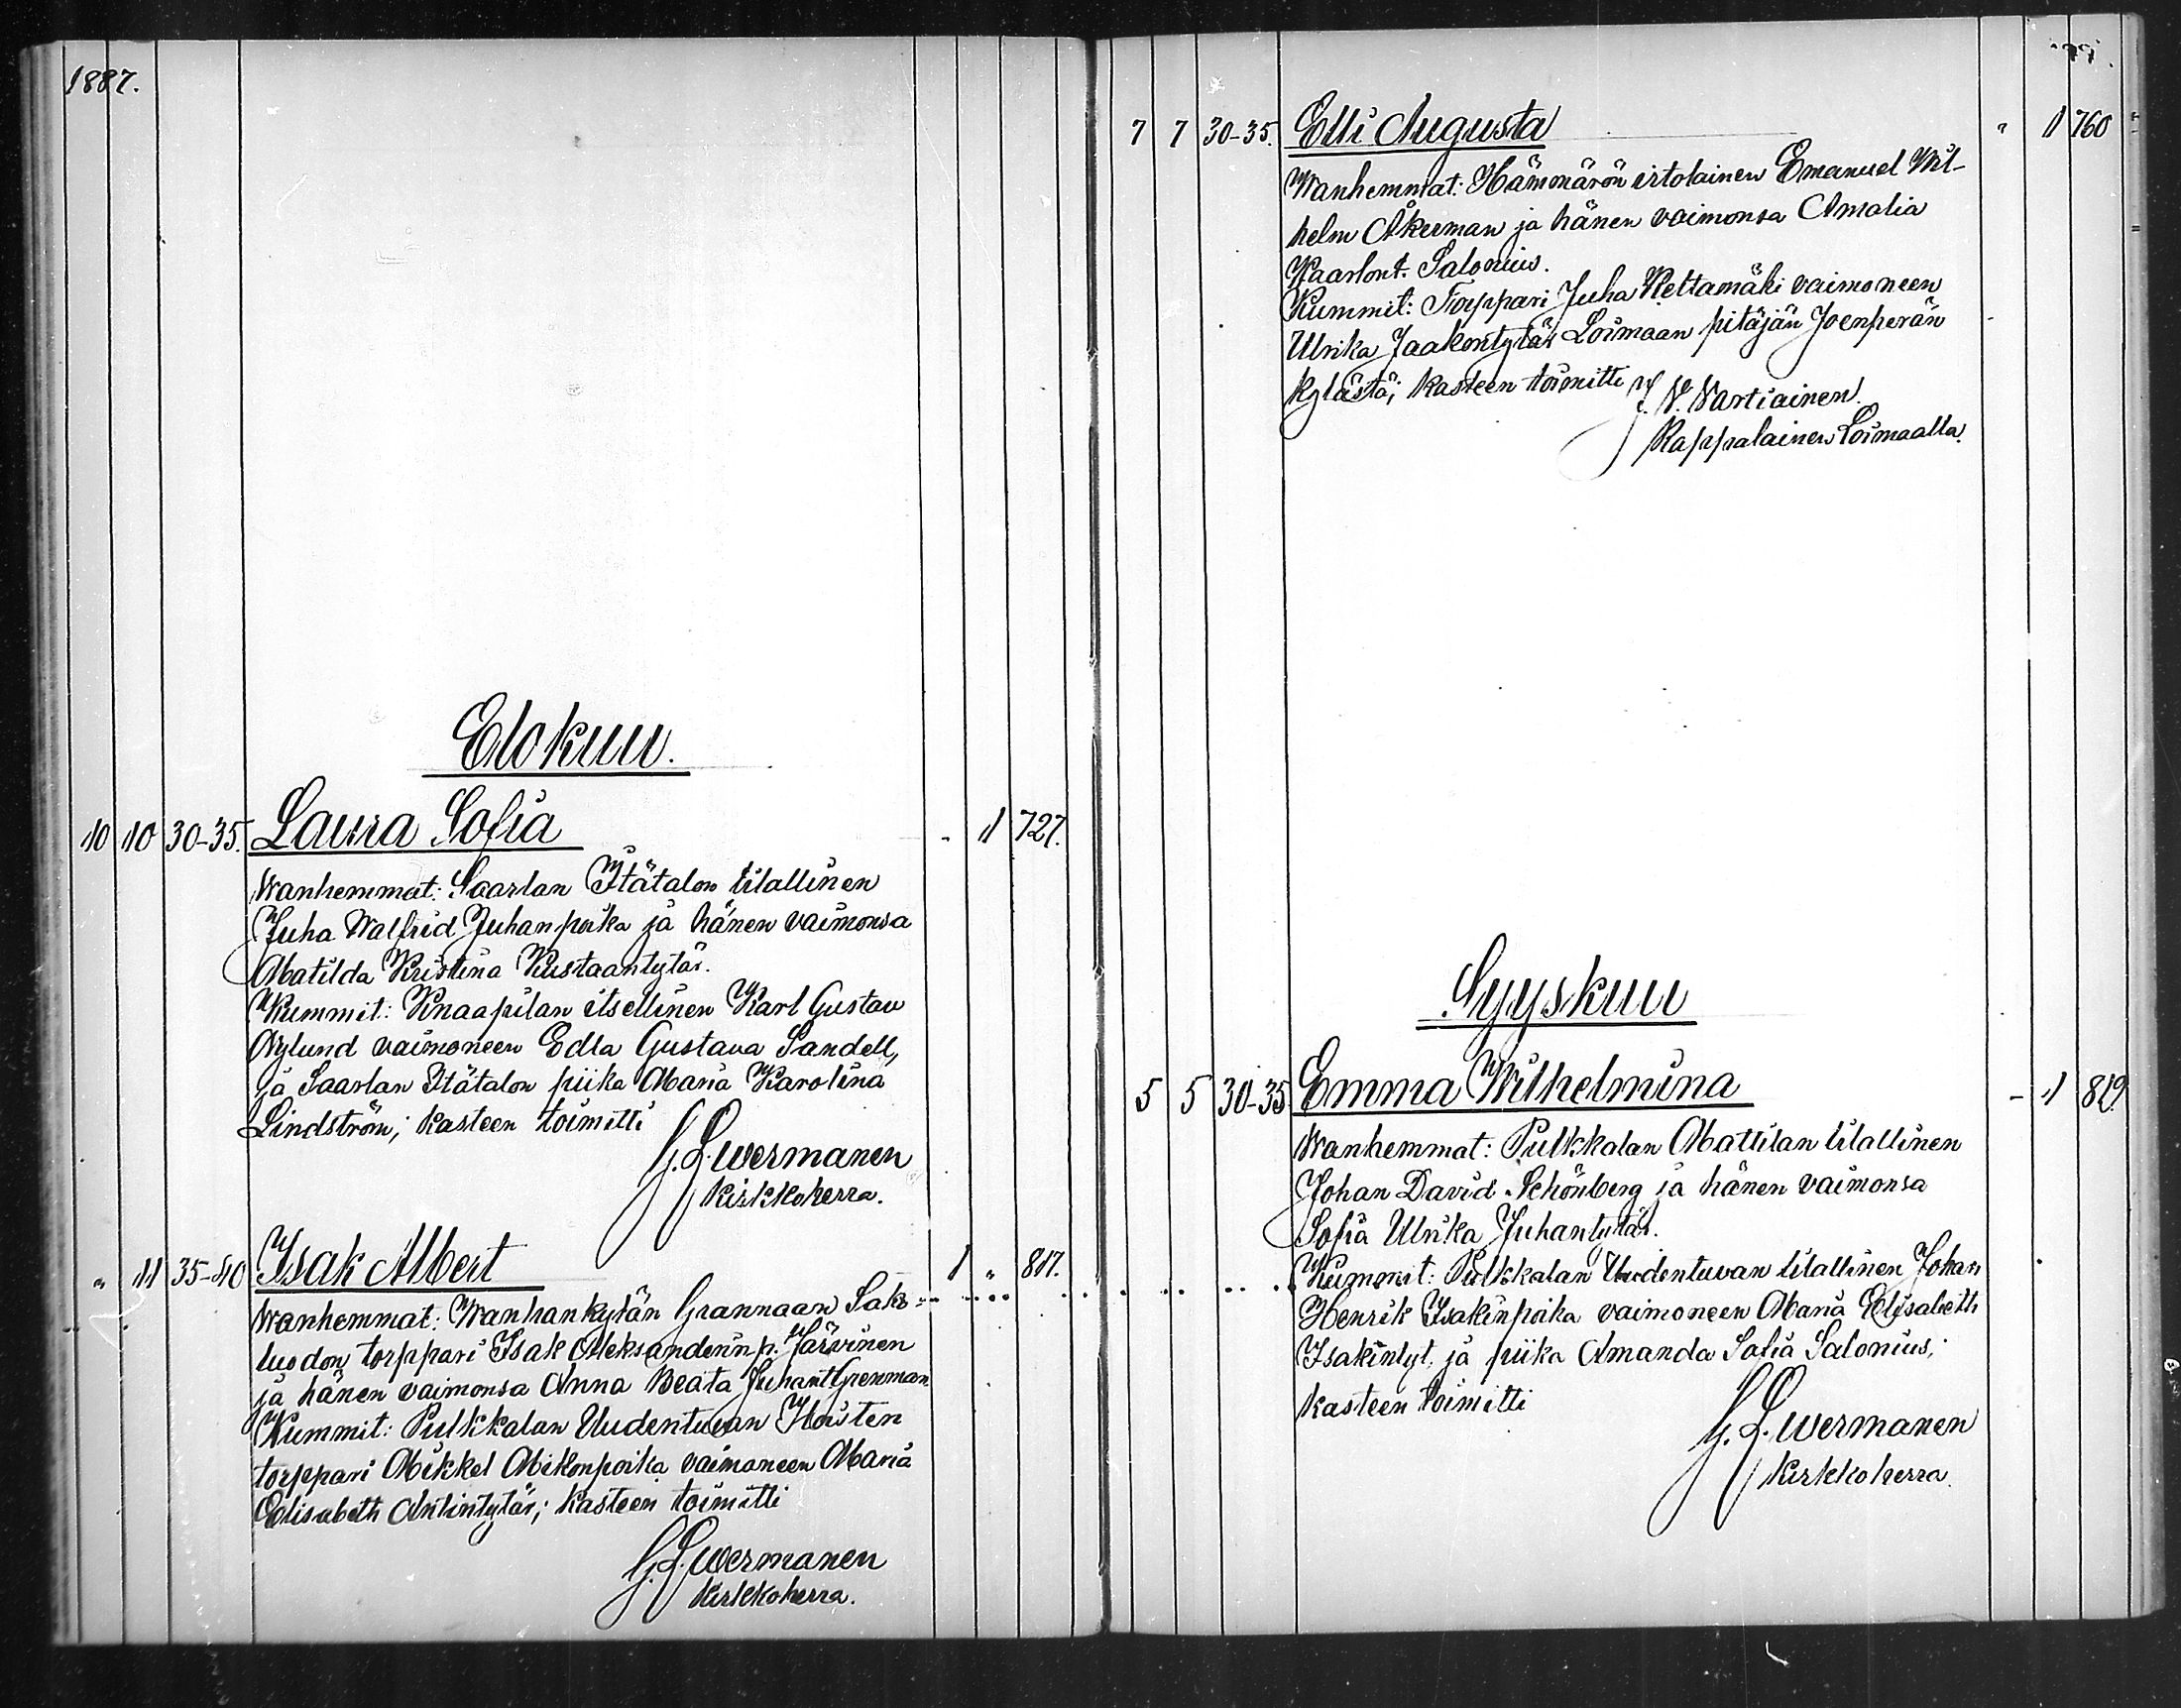 1887.
Elokuu.
10 10 30-35. Laura Sofia - 1 727.
Wanhemmat: Saarlan Itätalon tilallinen
Juha Walfrid Juhanpoika ja hänen vaimonsa
Matilda Kristina Kustaantytär.
Kummit: Knaapilan itsellinen Karl Gustav
Nylund vaimoneen Edla Gustava Sandell,
ja Saarlan Itätalon piika Maria Karolina
Lindström; kasteen toimitti
G. L. Wermanen
Kirkkoherra.
" 11 35-40 Isak Albert 1 " 817.
Wanhemmat: Wanhankylän Grannaan Saks-
luodon torppari Isak Aleksanderinp. Järvinen
ja hänen vaimonsa Anna Beata Juhant Grenman
Kummit: Pulkkalan Uudentuvan
torppari Mikkel Mikonpoika vaimoneen Maria
Elisabeth Antintytär; kasteen toimitti
G. L. Wermanen
Kirkkoherra.
7 7 30-35. Elli Augusta " 1 760
Wanhemmat: Hämmärön irtolainen Emanuel Wil-
helm Åkerman ja hänen vaimonsa Amalia
Kaarlont. Salonius.
Kummit: Torppari Juha Kettamäki vaimoneen
Ulrika Jaakontytär Loimaan pitäjän Joenperän
kylästä; kasteen toimitti
J. V. Vartiainen.
Kappalainen Loimaalla.
Syyskuu
5 5 30-35 Emma Wilhelmina - 1 819.
Wanhemmat: Pulkkalan Mattilan tilallinen
Johan David Schönberg ja hänen vaimonsa
Sofia Ulrika Juhantytär.
Kummit: Pulkkalan Uudentuvan tilallinen Johan
Henrik Isakinpoika vaimoneen Maria Elisabeth
Isakintyt. ja piika Amanda Sofia Salonius;
kasteen toimitti
G. L. Wermanen
Kirkkoherra.